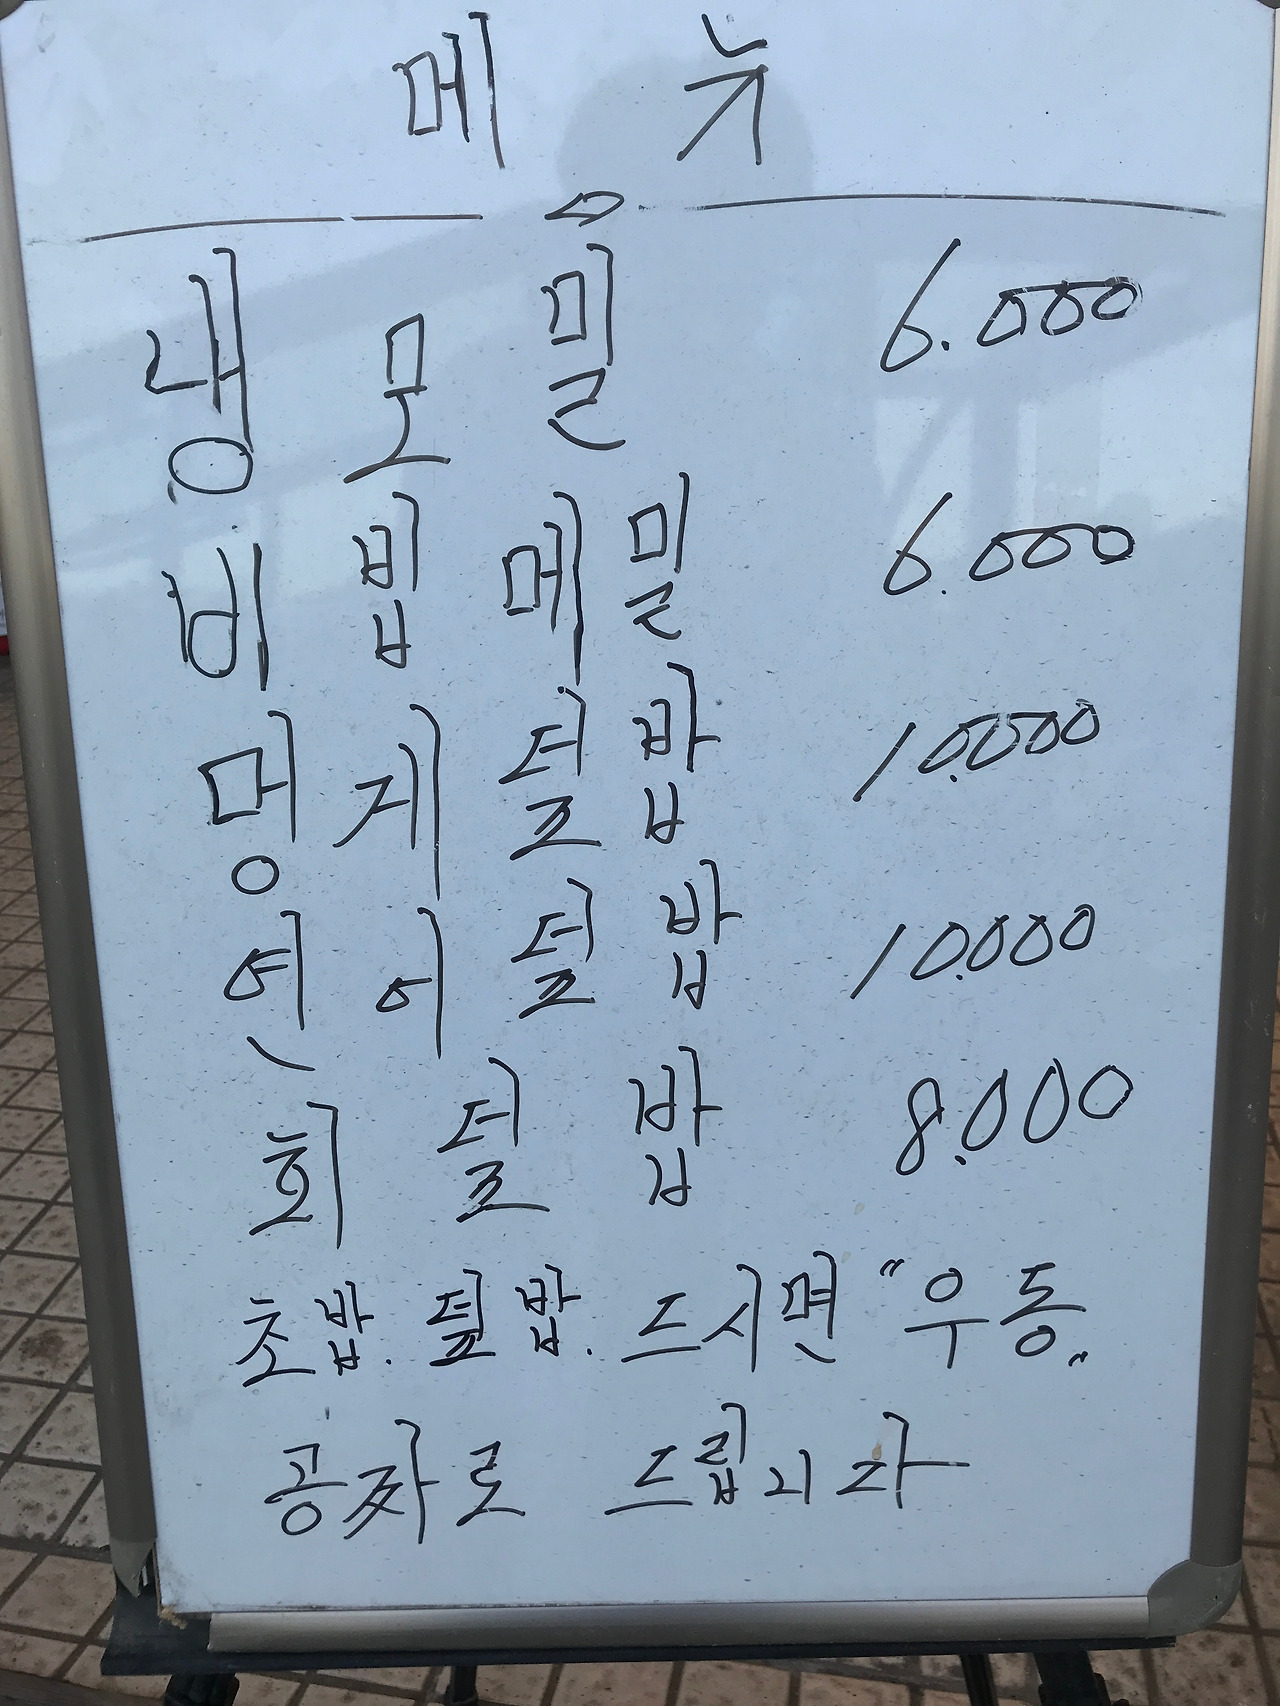 메 뉴
냉 모 밀 6.000
비 빔 메 밀 6.000
멍 게 덮 밥 10.000
연 어 덮 밥 10.000
회 덮 밥 8.000
초밥. 덮밥. 드시면 "우동"
공짜로 드립니다